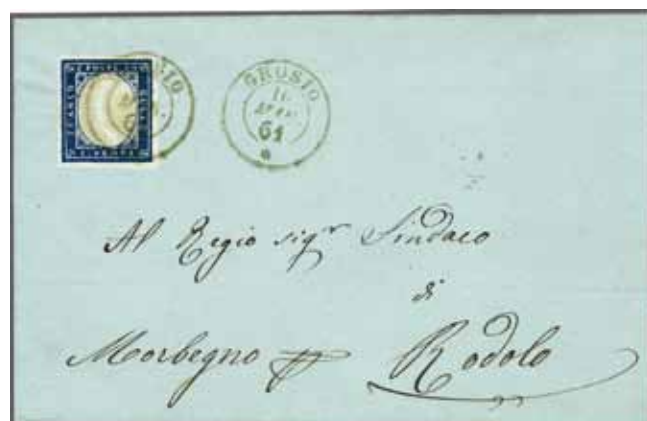 GROSIO
11
APR.
61
Al Regio sigr Sindaco
di
Morbegno Rodolo